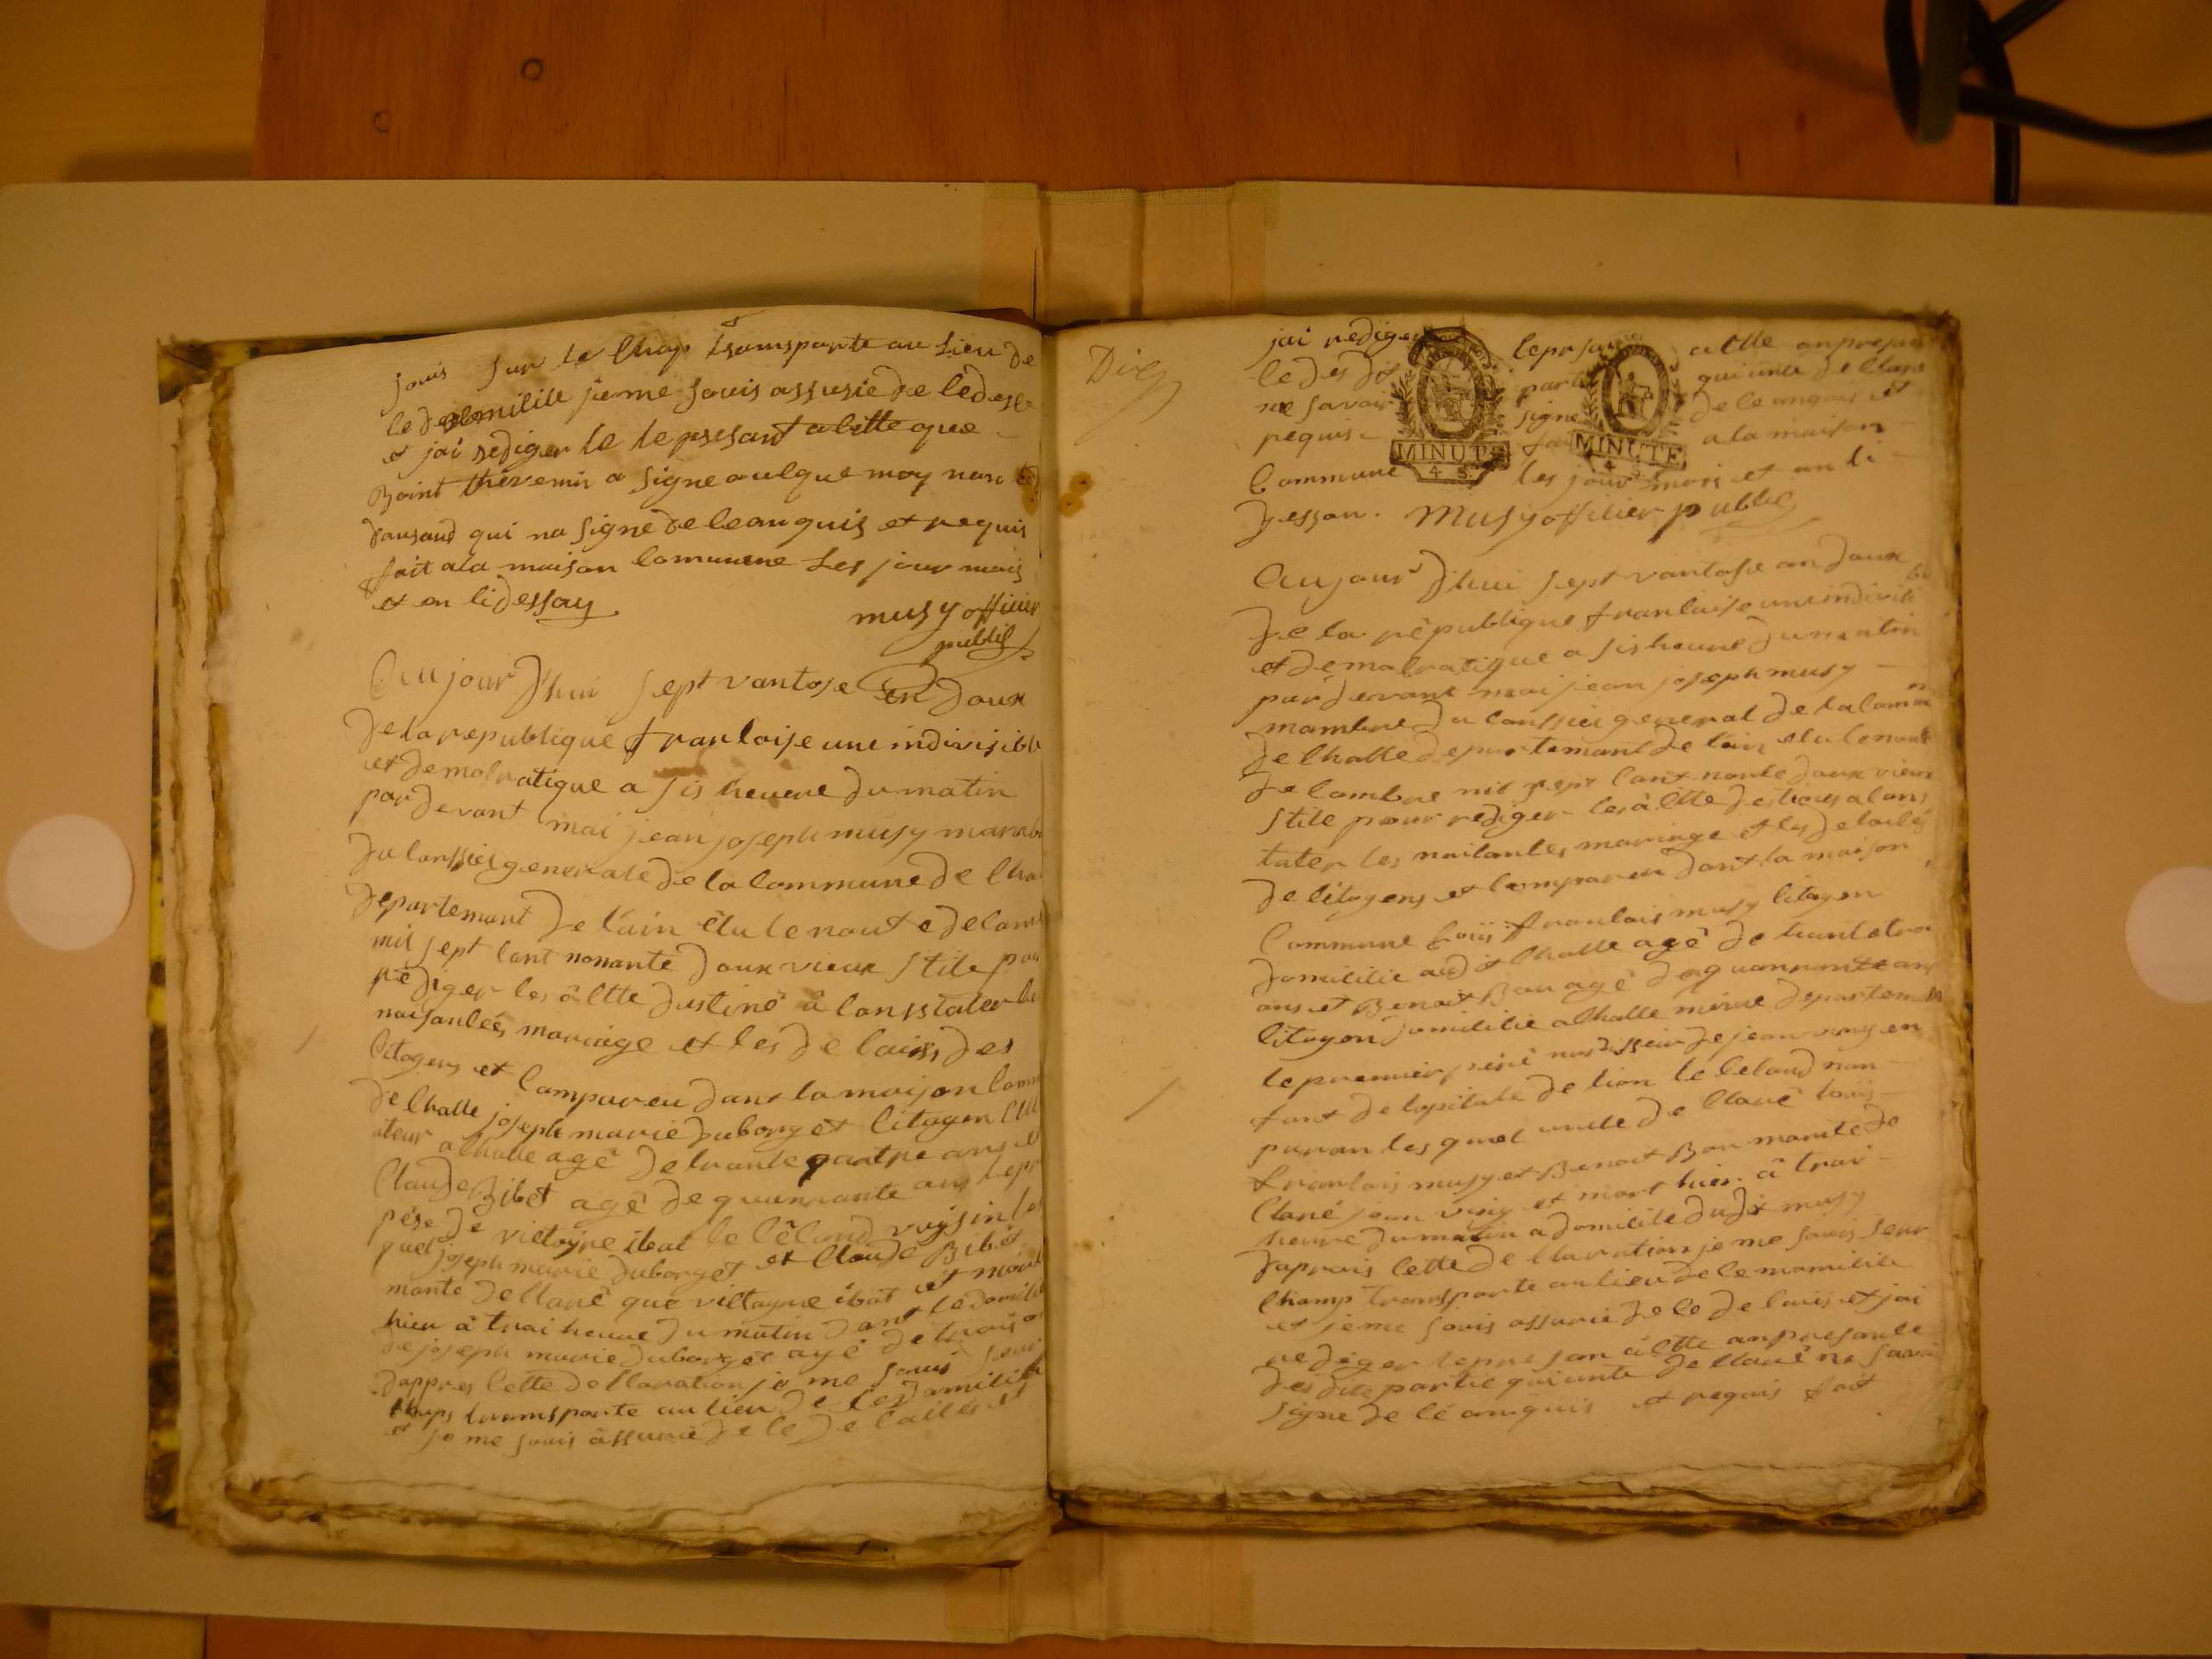 souis sur le Chap transparte au Lieu de
le domilile je me souis assurié de le desse
et jai rediger le lepresant alitte que
Boint thevenin a signe aulque moy non
dausand qui na signe de leanquis et requis
fait ala maison Comunene Les jour mois
et en lidessay
musy officier
publil
Aujourd'hui sept vantose en doux
de la republique franloise une indivisible
et demolratique a sis heuere du matin
pardevant moi jean joseph musy mamb
du lonssiel generale de la Commune de Cha
departemant de l'ain élu le nout e de lom
mil sept lant nonante doux vieux stile pou
rédiger les àltte destiné à lonstater le
naisanlées mariage et les de laiis des
Citogens et Compareu dans la maison Com
de Challe joseph marie duborget Citogen Cul
ateur a Challe agé de trante qautre ans et
Claude Bibet agé de quanrante ans Lepr
pére de victoyre ibat le Célond voysin les
quel joseph marie duborget et Claude Bibet
mante dellané que viltoyre ibat et mort
hier à trai heure du matin dans le domile
de joseph marie duborget agé de trais
dappres lette dellaration je me souis seur
Champs transparte au lieu de les domilile
et je me souis àssurié de le de laiiés et
Dix
jai rediger leprsan altte anpresan
le des dit parti qui unte dellare
ne savoir signe de leanquis et
requis fai a la maison
Commune les jour mois et an li
dessan. musy officier publil
MINUTE
4 S.
MINUTE
4
Aujourd'hui sept vantose an doux
de la république franlaise une indivisi
et demolratique a sis heure du matin
pardevant moi jean joseph musy
mambre du lonssiel general de la lomm
de Challe departemant de l'ain elu lenout
de lombre mil sept lant nonte doux vieux
stile pour rediger les àltte destieus a lons
tater les naitantes mariage et les delaiés
de litogens et lompareu dant la maison
Commune louis franlois musy litogen
domililie audit Challe agé de trante troi
ans et Benoit Bon agé de quanrante ans
litogen domililie a Challe méme departema
le premier péré nourisseur de jean viny en
fant de lopitale de lion le lelond non
paran les quel unte de llaré louis
franlois musy et Benoit Bon mante de
Clané jean viny et mort hier à trai
heure du matin a domilile dudit musy
daprais lette dellaration je me souis seur
Champ transparte au lieu de le momilile
et je me souis assurié de le de laiis et jai
rediger lepre san àltte anpresante
des dite partie qui unte dellaré ne savoi
signe de lé anquis et requis fait